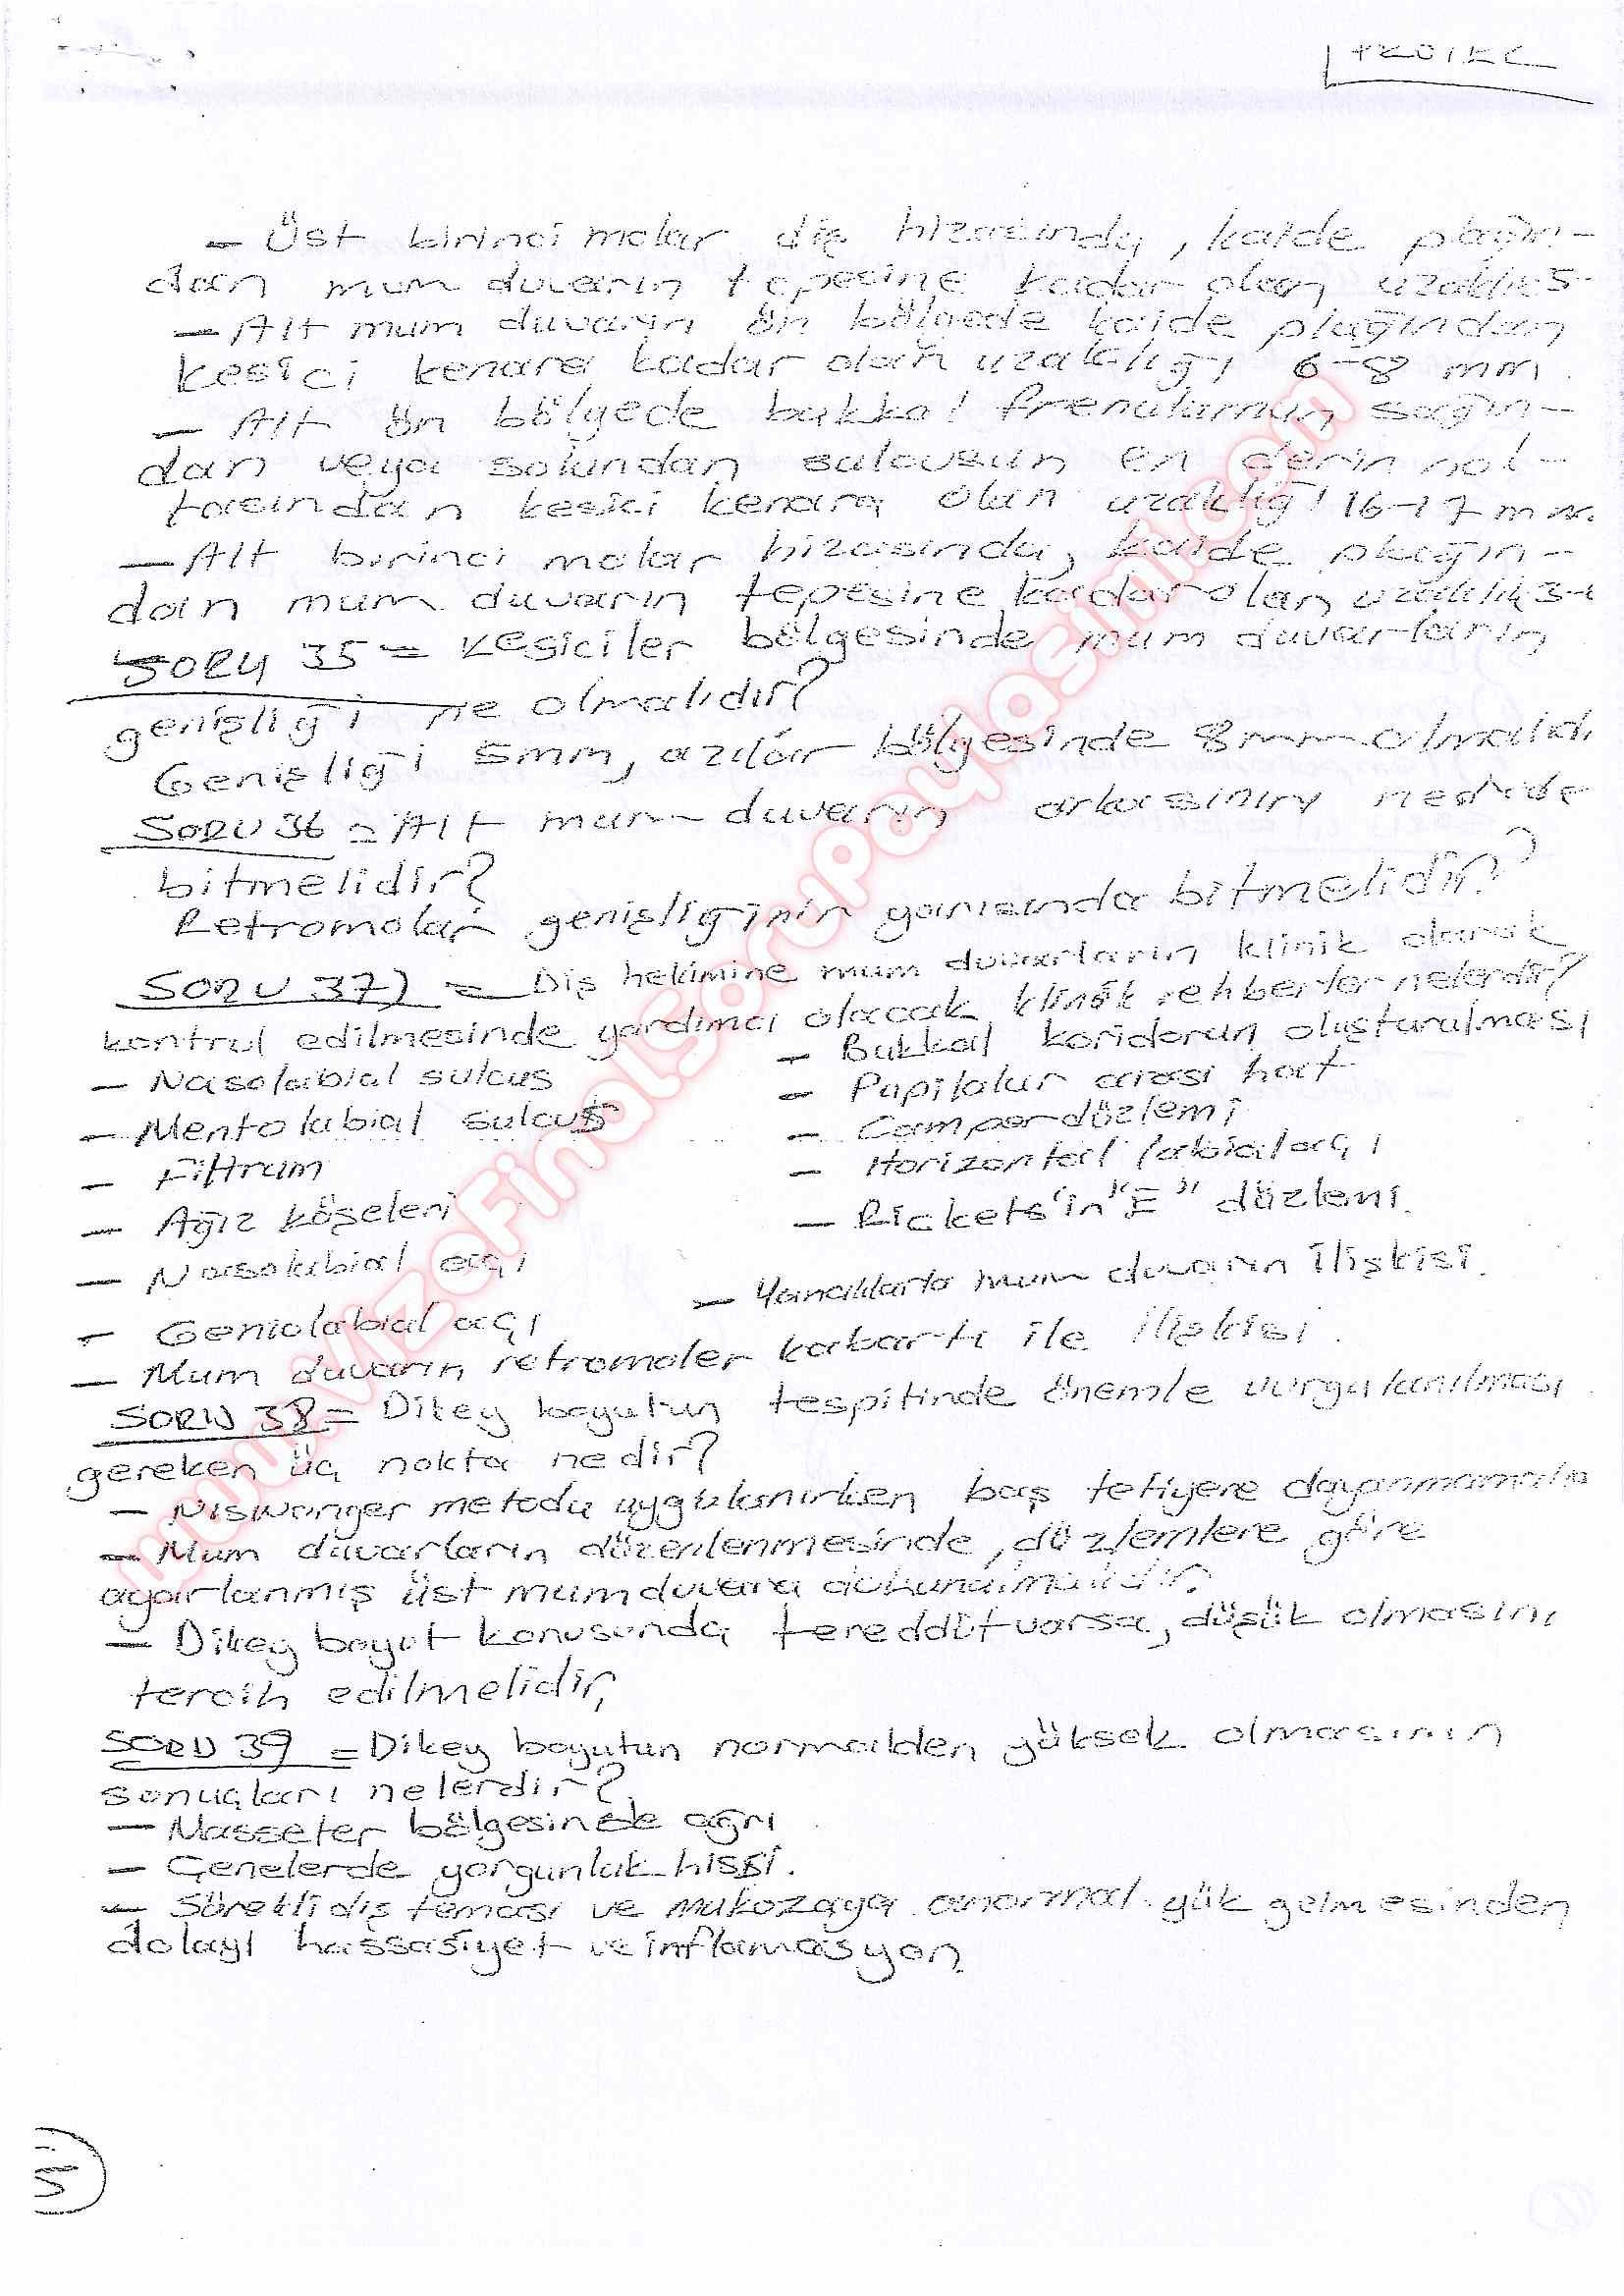 - Üst birinci molar diş hizasında, kaide plağın-
dan mum duvarın tepesine kadar olan uzaklık 5-
- Alt mum duvarın ön bölgede kaide plağından
kesici kenara kadar olan uzaklığı 6-8 mm.
- Alt ön bölgede bukkal frenulumun sağın-
dan veya solundan sulcusun en derin nok-
tasından kesici kenara olan uzaklığı 16-17 mm.
- Alt birinci molar hizasında, kaide plağın-
dan mum duvarın tepesine kadar olan uzaklık 3-
SORU 35 = Kesiciler bölgesinde mum duvarların
genişliği ne olmalıdır?
Genişliği 5mm, azılar bölgesinde 8mm olmalıdı
SORU 36 = Alt mum duvarın arka sınırı nerede
bitmelidir?
Retromolar genişliğinin yarısında bitmelidir.?
SORU 37) = Diş hekimine mum duvarların klinik olarak
kontrul edilmesinde yardımcı olacak klinik rehberler nelerdir?
- Nasolabial sulcus
- Mentolabial sulcus
- Filtrum
- Ağız köşeleri
- Nasolabial açı
- Geniolabial açı
- Bukkal koridorun oluşturulması
- Papilalar arası hat
- Camper düzlemi
- Horizontal labial açı
- Rickets'in "E" düzlemi.
- Yanaklarla mum duvarın ilişkisi.
- Mum duvarın retromoler kabartı ile ilişkisi.
SORU 38 = Dikey boyutun tespitinde önemle vurgulanılması
gereken üç nokta nedir?
- Niswonger metodu uygulanırken baş tetiyere dayanmamalı
- Mum duvarların düzenlenmesinde, düzlemlere göre
ayarlanmış üst mum duvara dokunulmalıdır.
- Dikey boyut konusunda tereddüt varsa, düşük olmasını
tercih edilmelidir,
SORU 39 = Dikey boyutun normalden yüksek olmasının
sonuçları nelerdir?
- Masseter bölgesinde ağrı
- Çenelerde yorgunluk hissi.
- Sürekli diş teması ve mukozaya anormal yük gelmesinden
dolayı hassasiyet ve inflamasyon.
www.VizeFinalSoruPaylasimi.com